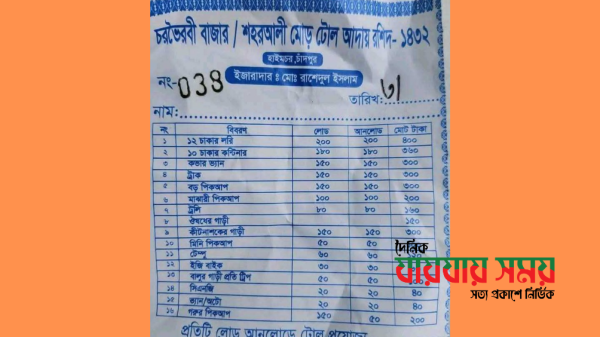 চরভৈরবী বাজার / শহরআলী মোড় টোল আদায় রশিদ- ১৪৩২
হাইমচর, চাঁদপুর
ইজারাদার ঃ মোঃ রাশেদুল ইসলাম
নং-034
তারিখ:
নাম:
নং বিবরণ লোড আনলোড মোট টাকা
১ ১২ চাকার লরি ২০০ ২০০ ৪০০
২ ১০ চাকার কন্টিনার ১৮০ ১৮০ ৩৬০
৩ কভার ভ্যান ১৫০ ১৫০ ৩০০
৪ ট্রাক ১৫০ ১৫০ ৩০০
৫ বড় পিকআপ ১৫০ ১৫০ ৩০০
৬ মাঝারী পিকআপ ১০০ ১০০ ২০০
৭ ট্রলি ৮০ ৮০ ১৬০
৮ ঔষধের গাড়ী ১৫০
৯ কীটনাশকের গাড়ী ১৫০ ১৫০ ৩০০
১০ মিনি পিকআপ ৫০ ৫০
১১ টেম্পু ৬০ ৬০
১২ ইজি বাইক ৩০ ৩০
১৩ বালুর গাড়ী প্রতি ট্রিপ ৫০ ৫০
১৪ সিএনজি ২০ ২০ ৪০
১৫ ভ্যান/অটো ২০ ২০ ৪০
১৬ গরুর পিকআপ ১৫০ ৫০ ২০০
প্রতিটি লোড আনলোডে টোল প্রযোজ্য
দৈনিক
যায়যায় সময়
সত্য প্রকাশে নির্ভিক